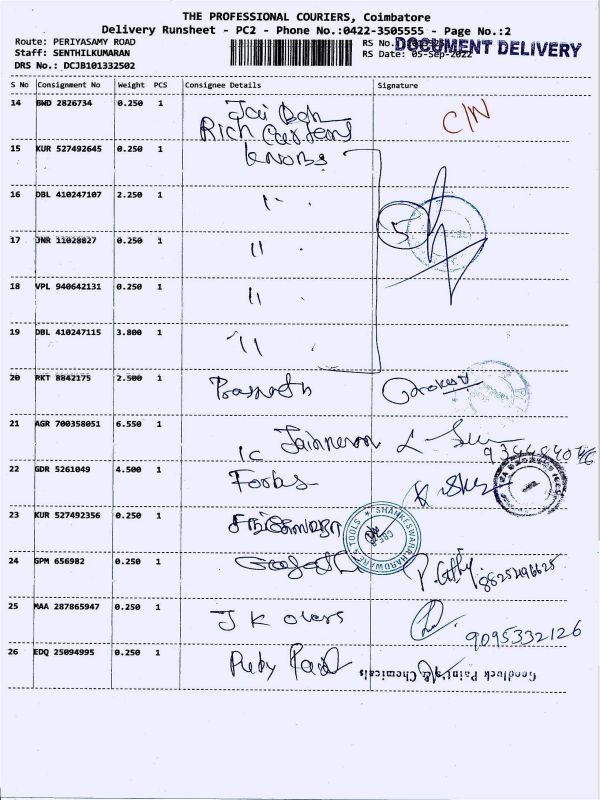 THE PROFESSIONAL COURIERS, Coimbatore
Delivery Runsheet - PC2 - Phone No.:0422-3505555 - Page No.:2
Route: PERIYASAMY ROAD
RS No.
DOCUMENT DELIVERY
Staff: SENTHILKUMARAN
RS Date: 05-Sep-2022
DRS No.: DCJB101332502
S No Consignment No Weight PCS Consignee Details Signature
14 BWD 2826734 0.250 1
Rich Gardens
C/N
15 KUR 527492645 0.250 1 knobs
16 DBL 410247107 2.250 1 "
5
17 JNR 11028827 0.250 1 "
18 VPL 940642131 0.250 1 "
19 DBL 410247115 3.800 1 "
20 RKT 8842175 2.500 1
21 AGR 700358051 6.550 1
22 GDR 5261049 4.500 1 Forbes
23 KUR 527492356 0.250 1
SHANKESWARA HARDWARE & TOOLS
CBE
24 GPM 656982 0.250 1
8825496625
25 MAA 287865947 0.250 1 J K
9095332126
26 EDQ 25094995 0.250 1 Ruby
Goodluck Paint's & Chemicals